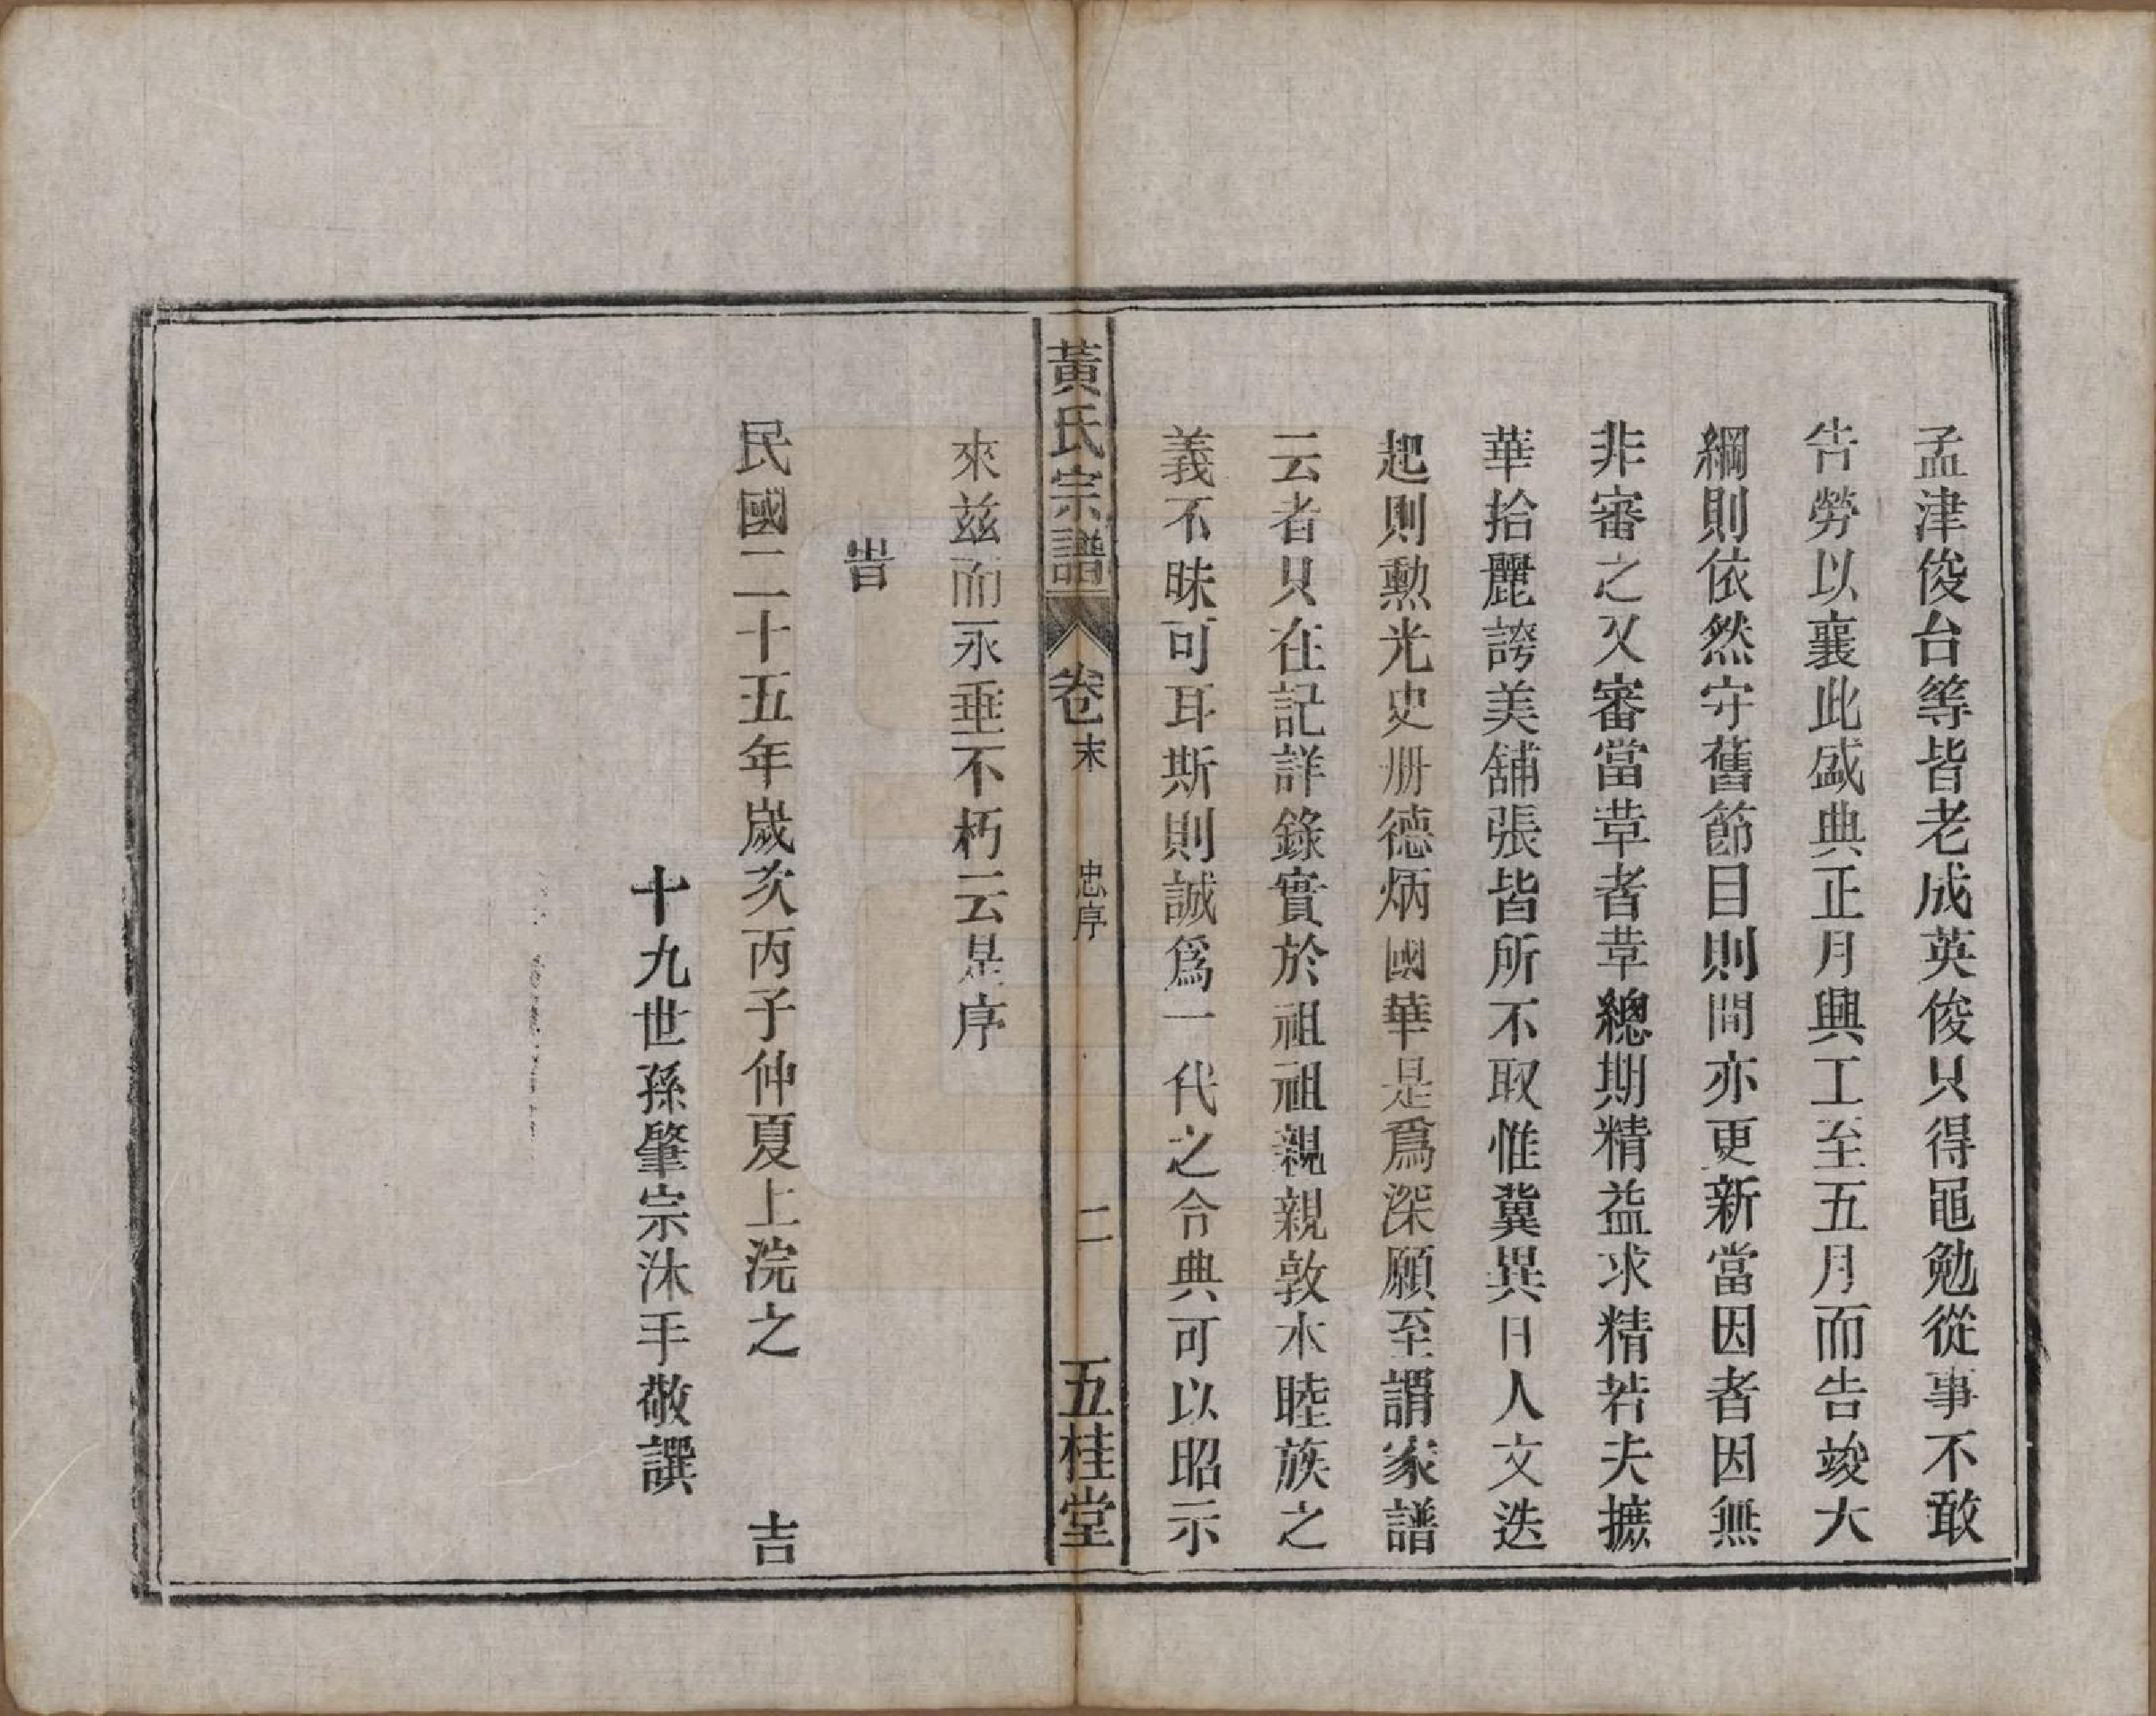 孟津俊台等皆老成英俊只得黽勉從事不敢
告勞以襄此盛典正月興工至五月而告竣大
綱則依然守舊節目則間亦更新當因者因無
非審之又審當革者革總期精益求精若夫摭
華拾麗誇美舖張皆所不取惟冀異日人文迭
起則勲光史册德炳國華是爲深願至謂家譜
云者只在記詳錄實於祖祖親親敦本睦族之
義不昧可耳斯則誠爲一代之令典可以昭示
黃氏宗譜 卷末 忠序 二 五桂堂
來茲而永垂不朽云是序
旹
民國二十五年歲次丙子仲夏上浣之 吉
十九世孫肇宗沐手敬譔